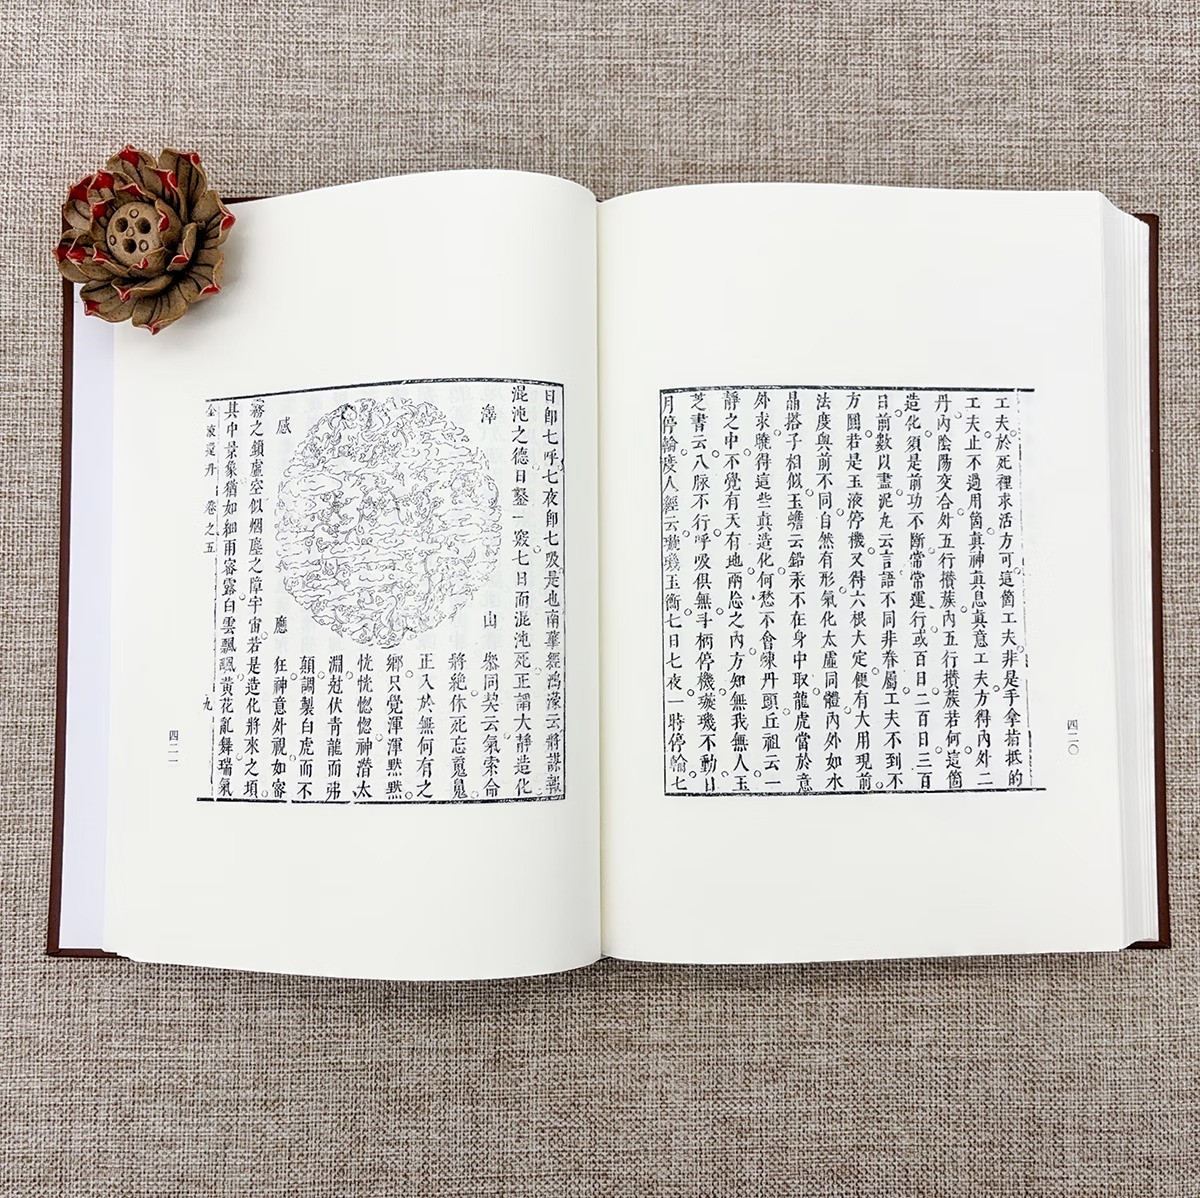 工夫於死裡求活方可這箇工夫非是手拿指抵的
工夫止不過用箇真神真息真意工夫方得內外二
丹內陰陽交合外五行攢蔟內五行攢蔟若何這箇
造化須是前功不斷常常運行或百日二百日三百
日前數以盡泥丸云言語不同非眷屬工夫不到不
方圓若是玉液停機又得六根大定便有大用現前
法度與前不同自然有形氣化太虛同體內外如水
晶搭子相似玉蟾云鉛汞不在身中取龍虎當於意
外求曉得這些真造化何愁不會煉丹頭丘祖云一
靜之中不覺有天有地兩忘之內方知無我無人玉
芝書云八脉不行呼吸俱無斗柄停機璇璣不動日
月停輪度人經云璇璣玉衡七日七夜一時停輪七
四二〇
日即七呼七夜即七吸是也南華經鴻濛云將謀報
混沌之德日鑿一竅七日而混沌死正謂大靜造化
澤 山
叅同契云氣索命
將絶休死忘䰟魄
正入於無何有之
鄉只覺渾渾黙黙
恍恍惚惚神潛太
淵尅伏青龍而弗
顛調製白虎而不
狂神意外視如審
感 應
霧之鎖虛空似烟塵之障宇宙若是造化將來之項
其中景象猶如細雨密露白雲飄颻黃花亂舞瑞氣
卷之五
九
四二一